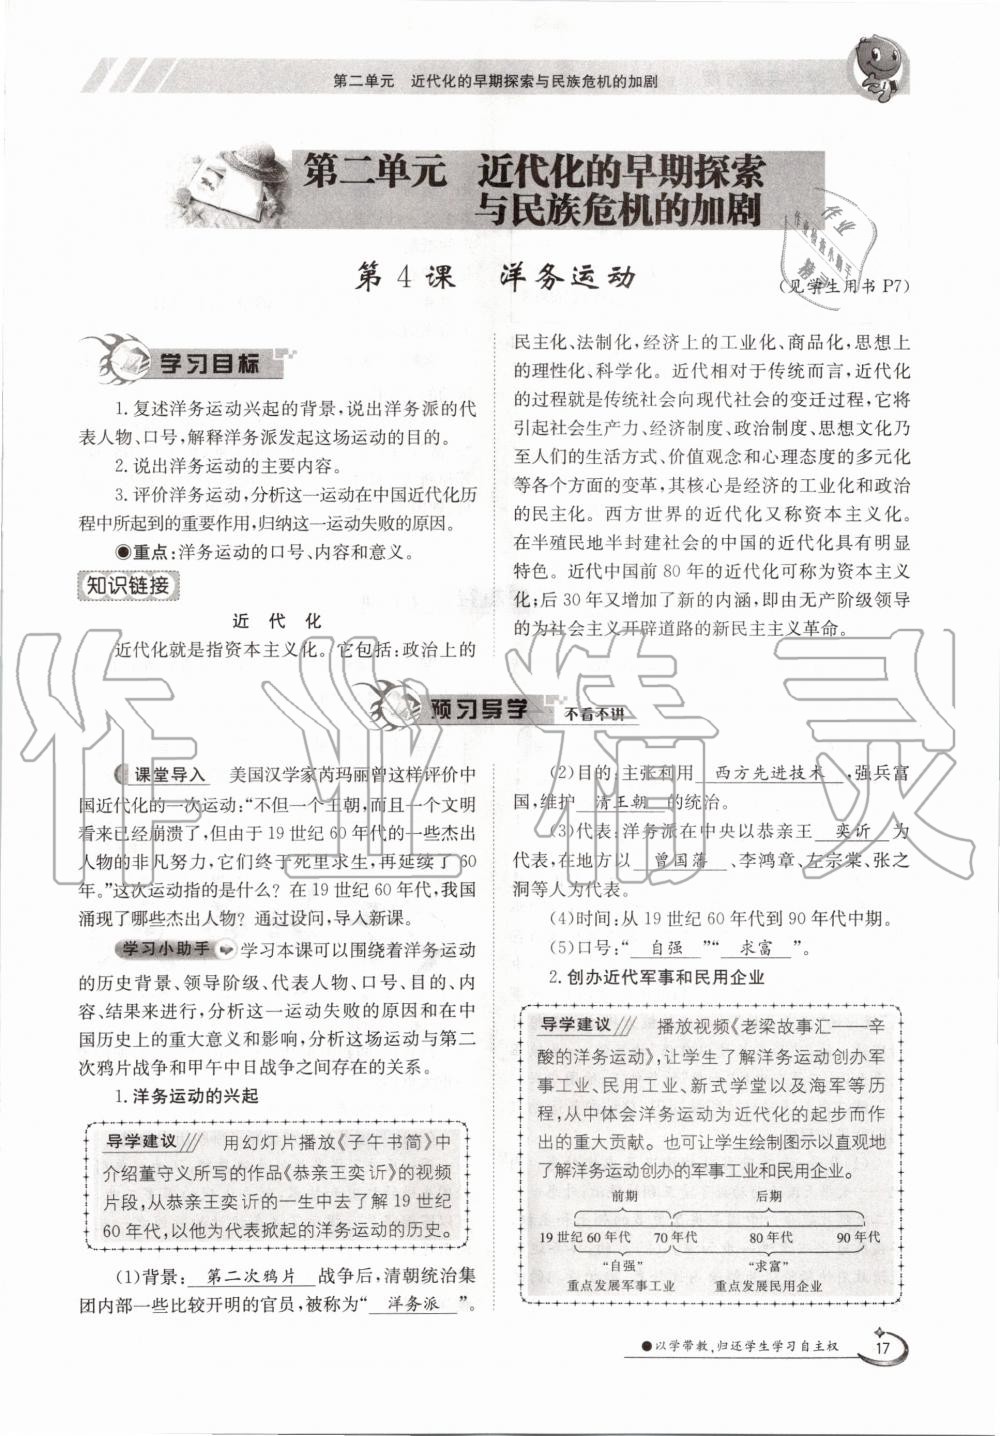 第二单元 近代化的早期探索与民族危机的加剧
第二单元 近代化的早期探索
与民族危机的加剧
第4课 洋务运动
(见学生用书 P7)
学习目标
1. 复述洋务运动兴起的背景,说出洋务派的代
表人物、口号,解释洋务派发起这场运动的目的。
2. 说出洋务运动的主要内容。
3. 评价洋务运动,分析这一运动在中国近代化历
程中所起到的重要作用,归纳这一运动失败的原因。
●重点:洋务运动的口号、内容和意义。
知识链接
近 代 化
近代化就是指资本主义化。它包括:政治上的
民主化、法制化,经济上的工业化、商品化,思想上
的理性化、科学化。近代相对于传统而言,近代化
的过程就是传统社会向现代社会的变迁过程,它将
引起社会生产力、经济制度、政治制度、思想文化乃
至人们的生活方式、价值观念和心理态度的多元化
等各个方面的变革,其核心是经济的工业化和政治
的民主化。西方世界的近代化又称资本主义化。
在半殖民地半封建社会的中国的近代化具有明显
特色。近代中国前 80 年的近代化可称为资本主义
化;后 30 年又增加了新的内涵,即由无产阶级领导
的为社会主义开辟道路的新民主主义革命。
预习导学 不看不讲
课堂导入 美国汉学家芮玛丽曾这样评价中
国近代化的一次运动:“不但一个王朝,而且一个文明
看来已经崩溃了,但由于 19 世纪 60 年代的一些杰出
人物的非凡努力,它们终于死里求生,再延续了 60
年。”这次运动指的是什么? 在 19 世纪 60 年代,我国
涌现了哪些杰出人物? 通过设问,导入新课。
学习小助手 学习本课可以围绕着洋务运动
的历史背景、领导阶级、代表人物、口号、目的、内
容、结果来进行,分析这一运动失败的原因和在中
国历史上的重大意义和影响,分析这场运动与第二
次鸦片战争和甲午中日战争之间存在的关系。
1. 洋务运动的兴起
导学建议 用幻灯片播放《子午书简》中
介绍董守义所写的作品《恭亲王奕䜣》的视频
片段,从恭亲王奕䜣的一生中去了解 19 世纪
60 年代,以他为代表掀起的洋务运动的历史。
(1)背景: 第二次鸦片 战争后,清朝统治集
团内部一些比较开明的官员,被称为“ 洋务派 ”。
(2)目的:主张利用 西方先进技术 ,强兵富
国,维护 清王朝 的统治。
(3)代表:洋务派在中央以恭亲王 奕䜣 为
代表,在地方以 曾国藩 、李鸿章、左宗棠、张之
洞等人为代表。
(4)时间:从 19 世纪 60 年代到 90 年代中期。
(5)口号:“ 自强 ”“ 求富 ”。
2. 创办近代军事和民用企业
导学建议 播放视频《老梁故事汇——辛
酸的洋务运动》,让学生了解洋务运动创办军
事工业、民用工业、新式学堂以及海军等历
程,从中体会洋务运动为近代化的起步而作
出的重大贡献。也可让学生绘制图示以直观地
了解洋务运动创办的军事工业和民用企业。
前期 后期
19 世纪 60 年代 70 年代 80 年代 90 年代
“自强” “求富”
重点发展军事工业 重点发展民用企业
●以学带教,归还学生学习自主权 17
作业精灵